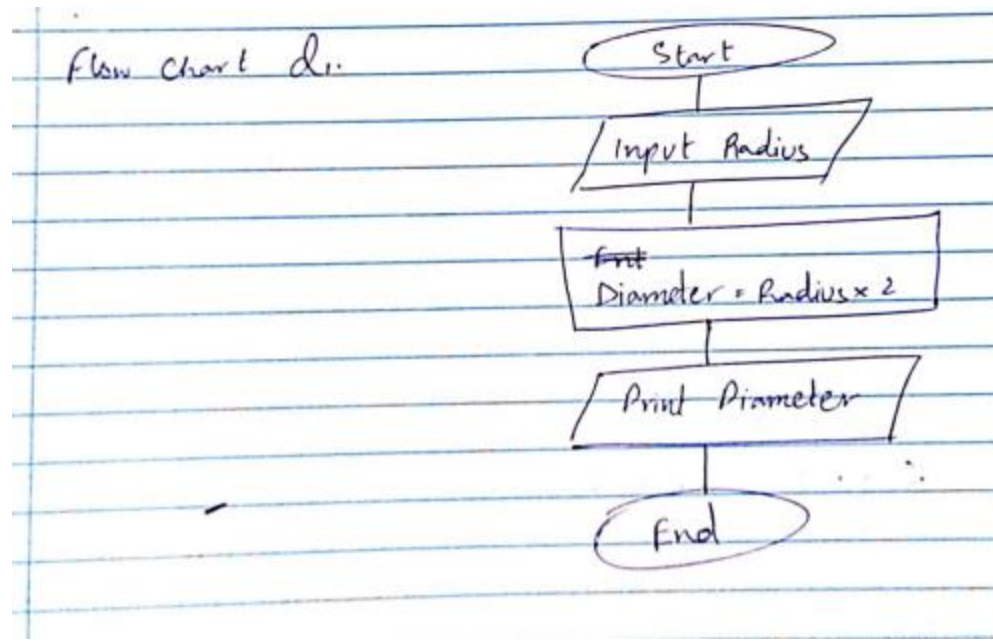 Flow chart d.
Start
Input Radius
Diameter = Radius × 2
Print Diameter
End